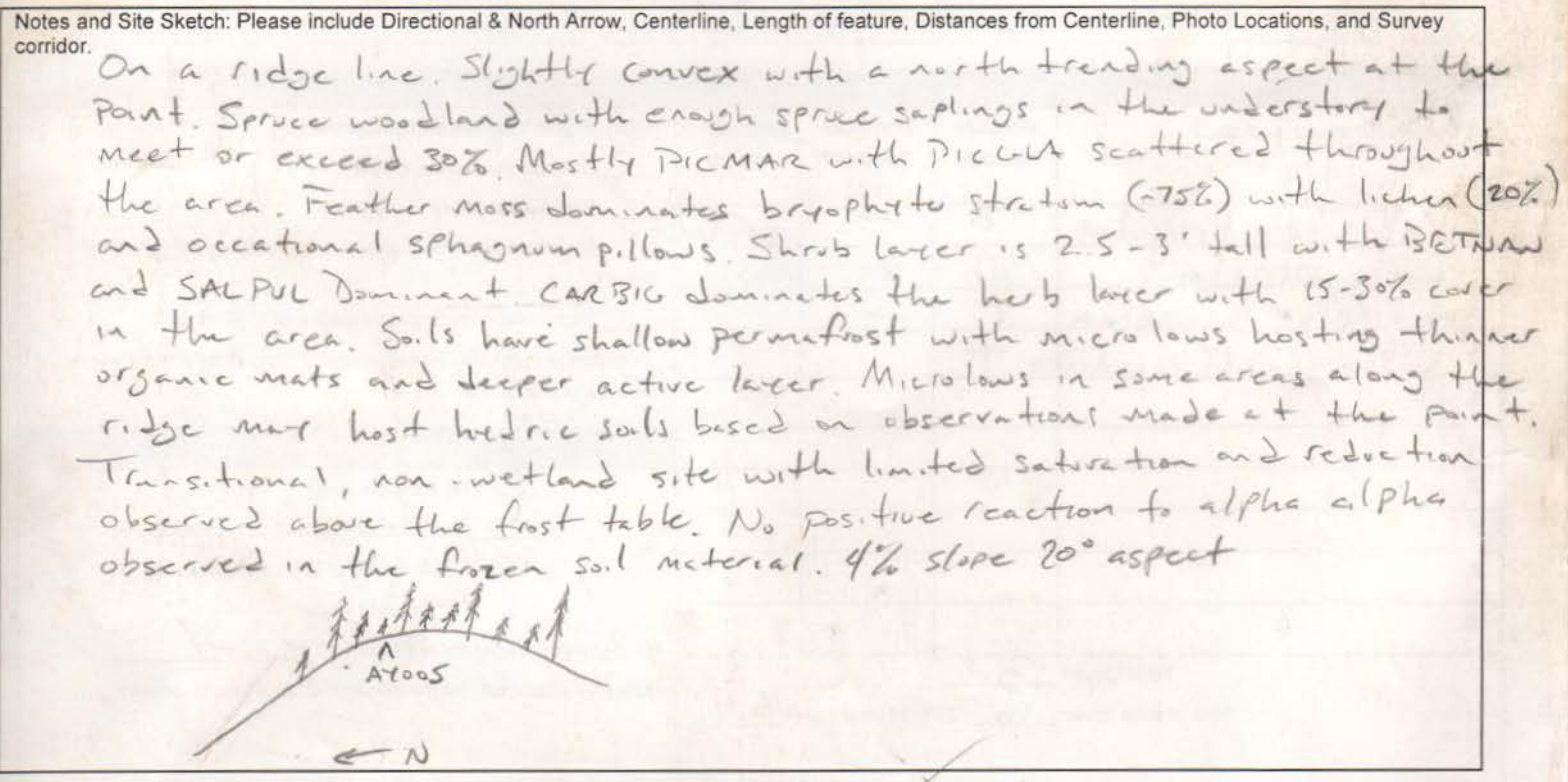 Notes and Site Sketch: Please include Directional & North Arrow, Centerline, Length of feature, Distances from Centerline, Photo Locations, and Survey
corridor.
On a ridge line. Slightly convex with a north trending aspect at the
Point. Spruce woodland with enough spruce saplings in the understory to
meet or exceed 30%. Mostly PICMAR with PICGLA scattered throughout
the area. Feather moss dominates bryophyte stratum (~75%) with lichen (20%)
and occational sphagnum pillows. Shrub layer is 2.5-3' tall with BETNAN
and SALPUL Dominant. CARBIG dominates the herb layer with 15-30% cover
in the area. Soils have shallow permafrost with micro lows hosting thinner
organic mats and deeper active layer. Microlows in some areas along the
ridge may host hydric soils based on observations made at the point.
Transitional, non-wetland site with limited saturation and reduction
observed above the frost table. No positive reaction to alpha alpha
observed in the frozen soil material. 4% slope 20° aspect
AY005
← N